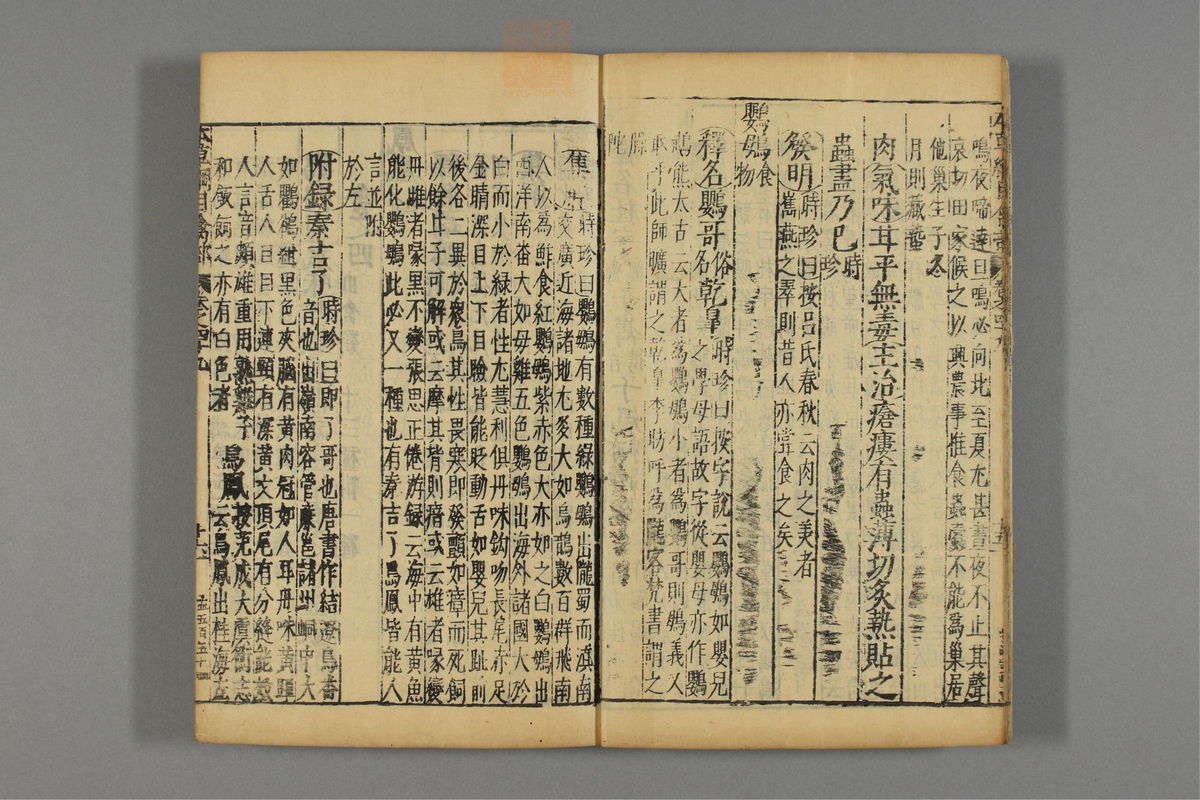 鳴夜啼達旦鳴必向北至夏尤甚晝夜不止其聲
哀切田家候之以興農事惟食蟲蠹不能為巢居
他巢生子冬
月則藏蟄
肉氣味甘平無毒主治瘡瘻有蟲薄切炙熱貼之
蟲盡乃已時珍
發明時珍曰按呂氏春秋云肉之美者
雋燕之翠則昔人亦嘗食之矣
鸚䳇食物
釋名鸚哥俗名乾皋時珍曰按字說云鸚䳇如嬰兒
之學母語故字從嬰母亦作鸚
鵡熊太古云大者為鸚䳇小者為鸚哥則䳇義又
取乎此師曠謂之乾皋李昉呼為隴客梵書謂之
臊陀
集解時珍曰鸚䳇有數種綠鸚䳇出隴蜀而滇南
交廣近海諸地尤多大如烏鵲數百群飛南
人以為鮓食紅鸚䳇紫赤色大亦如之白鸚䳇出
西洋南番大如母雞五色鸚䳇出海外諸國大於
白而小於綠者性尤慧利俱丹咮鈎吻長尾赤足
金睛深目上下目瞼皆能眨動舌如嬰兒其趾前
後各二異於衆鳥其性畏寒即發顫如瘴而死飼
以餘甘子可解或云摩其背則瘖或云雄者喙變
丹雌者喙黑不變張思正倦游録云海中有黃魚
能化鸚䳇此必又一種也有秦吉了鳥鳳皆能人
言並附
於左
附録秦吉了時珍曰即了哥也唐書作結遼鳥番
音也出嶺南容管廉邕諸州峒中大
如鸜鵒紺黑色夾腦有黃肉冠如人耳丹咮黃距
人舌人目目下連頸有深黃文頂尾有分縫能效
人言音頗雄重用熟雞子
和飯飼之亦有白色者 鳥鳳按范成大虞衡志
云鳥鳳出桂海左